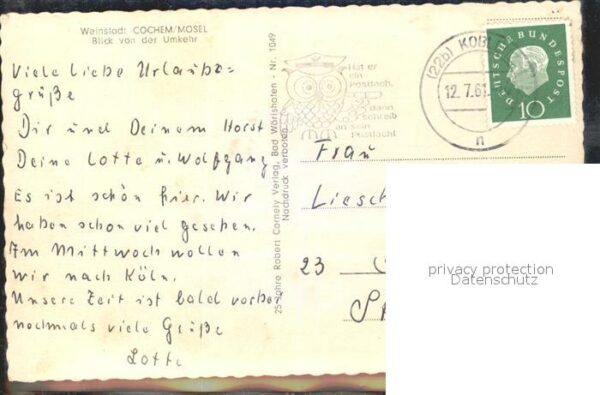 Weinstadt COCHEM/MOSEL
Blick von der Umkehr
Viele liebe Urlaubs=
grüße
Dir und Deinem Horst
Deine Lotte u. Wolfgang
Es ist schön hier. Wir
haben schon viel gesehen.
Am Mittwoch wollen
wir nach Köln.
Unsere Zeit ist bald vorbei
nochmals viele Grüße
Lotte
25 Jahre Robert Cornely Verlag, Bad Wörishofen - Nr. 1049
Nachdruck verboten
Hat er
ein
Postfach,
dann
schreib
an sein
Postfach!
(22b) KOBL
12.7.61
n
DEUTSCHE BUNDESPOST
10
Frau
Liesch
23
privacy protection
Datenschutz